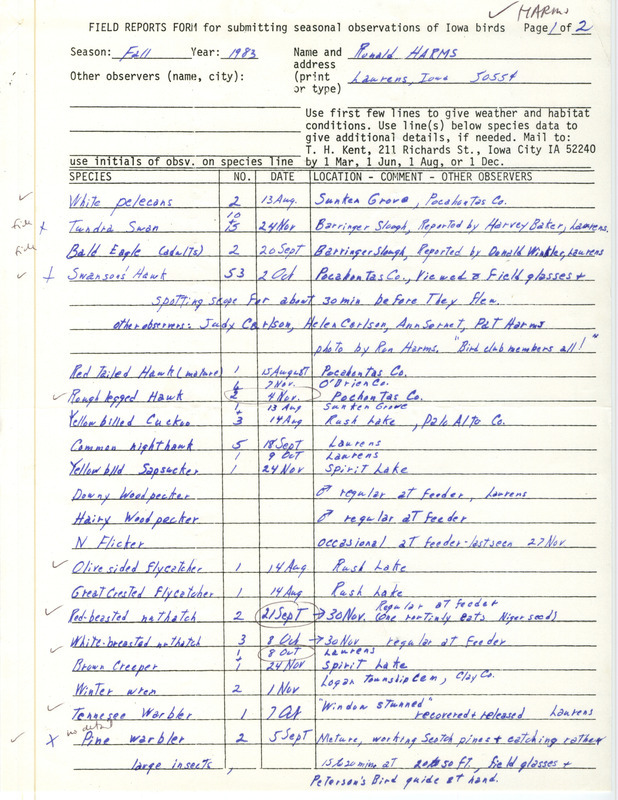 ✓ HARMS
FIELD REPORTS FORM for submitting seasonal observations of Iowa birds Page 1 of 2
Season: Fall Year: 1983 Name and Ronald HARMS
address
Other observers (name, city): (print Laurens, Iowa 50554
or type)
Use first few lines to give weather and habitat
conditions. Use line(s) below species data to
give additional details, if needed. Mail to:
T. H. Kent, 211 Richards St., Iowa City IA 52240
use initials of obsv. on species line by 1 Mar, 1 Jun, 1 Aug, or 1 Dec.
SPECIES NO. DATE LOCATION - COMMENT - OTHER OBSERVERS
✓ White pelecans 2 13 Aug. Sunken Grove, Pocahontas Co.
10
+
x Tundra Swan 15 24 Nov Barringer Slough, Reported by Harvey Baker, Laurens.
Bald Eagle (adults) 2 20 Sept Barringer Slough, Reported by Donald Winkler, Laurens
✓ + Swansons' Hawk 53 2 Oct Pocahontas Co., Viewed Field glasses +
spotting scope for about 30 min before They flew.
other observers: Judy Carlson, Helen Carlson, Ann Sornet, Pat Harms
photo by Ron Harms. "Bird club members all!"
Red tailed Hawk (mature) 1 15 August Pocahontas Co.
7 Nov. O'Brien Co.
✓ Rough legged Hawk 2 4 Nov. Pochontas Co.
1 13 Aug Sunken Grove
+
Yellow billed Cuckoo 3 14 Aug Rush Lake, Palo Alto Co.
Common nighthawk 5 18 Sept Laurens
1 9 Oct Laurens
Yellow blld Sapsucker 1 24 Nov Spirit Lake
Downy Woodpecker ♂ regular at feeder, Laurens
Hairy Woodpecker ♂ regular at feeder
N Flicker occasional at feeder-last seen 27 Nov
✓ Olive sided Flycatcher 1 14 Aug Rush Lake
Great Crested Flycatcher 1 14 Aug Rush Lake
Regular at feeder
✓ Red-beasted nuthatch 2 21 Sept → 30 Nov. (one rortinly eats Niger seed)
✓ White-breasted nuthatch 3 8 Oct → 30 Nov regular at feeder
1 8 Oct Laurens
+
Brown Creeper 1 24 Nov Spirit Lake
Winter wren 2 1 Nov Logan Township Cem, Clay Co.
"Window stunned"
✓ Tennesee Warbler 1 7 Oct recovered + released Laurens
no detail
✓ x Pine warbler 2 5 Sept Mature, working Scotch pines + catching rather
large insects, 15 to 20 mins. at 20 to 30 ft, field glasses +
Peterson's Bird guide at hand.